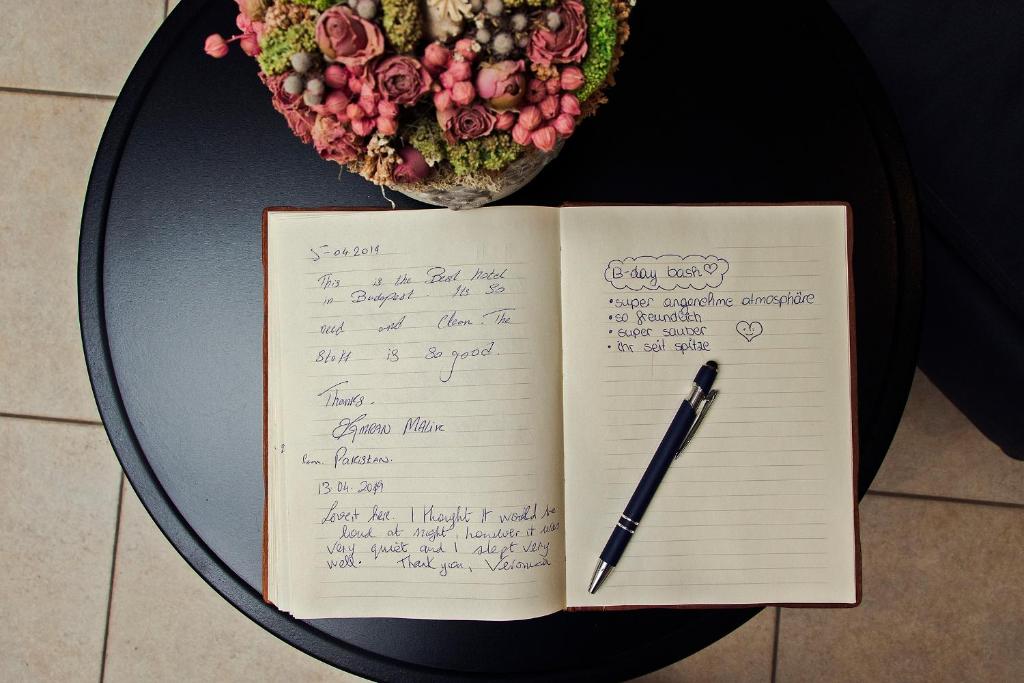 5-04 2019
This is the Best hotel
in Budapest. Its So
and Clean. The
Staff is So good.
Thanks.
IMRAN MALIK
from. PAKISTAN.
13.04.2019
Loved it here. I thought it would be
loud at night, however it was
very quiet and I slept very
well. Thank you, Veronica
B-day bash ♡
• super angenehme atmosphäre
• so freundlich
• super sauber
• ihr seit spitze